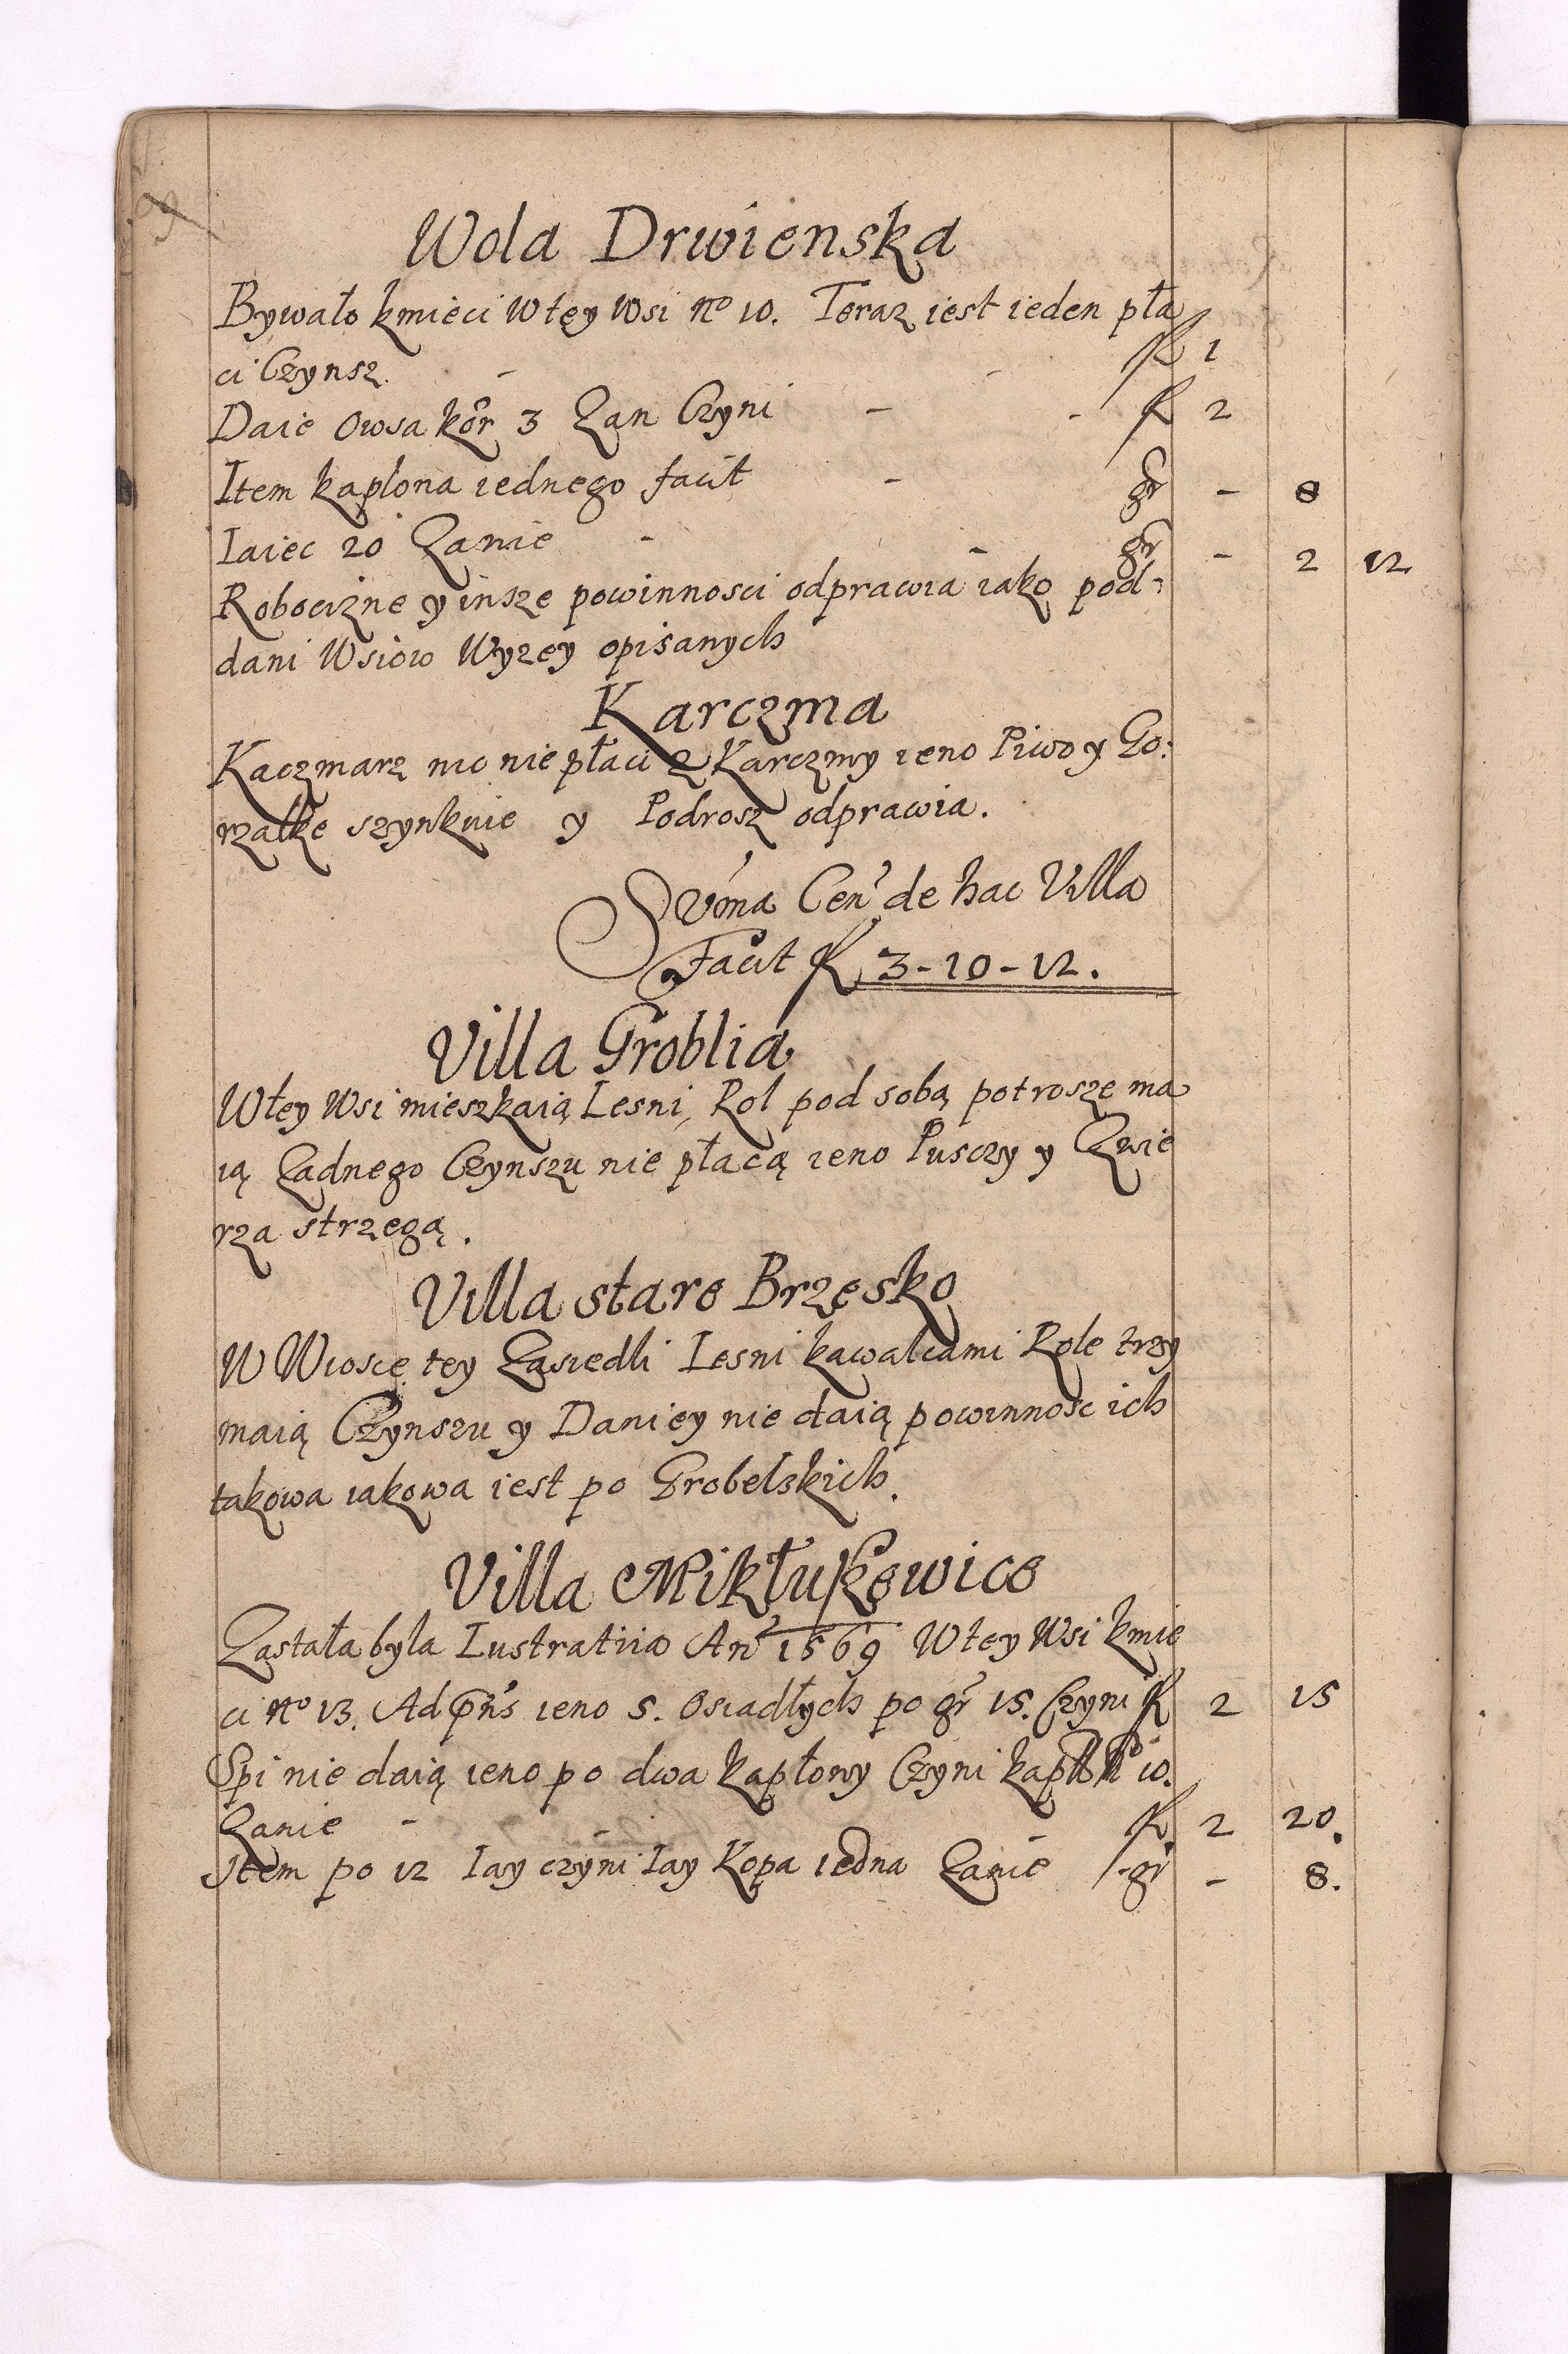 Wola Drwienska
Bywało kmieci Wtey Wsi No 10. Teraz iest ieden pła
ci Czynsz. - - ƒ 1
Daie Owsa kor 3 Zan Czyni - - ƒ 2
Item kaplona iednego facit - gr - 8
Iaiec 20 Zanie - - gr - 2 12
Robocizne y insze powinnosci odprawia iako pod=
dani Wsiow Wyzey opisanych
Karczma
Kaczmarz nic nie płaci z Karczmy ieno Piwo y Go:
rzałke szynkuie y Podrosz odprawia.
Suma Cen de hac Villa
Facit ƒ 3-10-12.
Villa Groblia
Wtey Wsi mieszkaią Lesni, Rol pod sobą potrosze ma
ią Zadnego Czynszu nie płacą ieno Pusczy y Zwie
rza strzegą.
Villa stare Brzesko
W Wiosce tey Zasiedli Lesni kawalcami Role trzy
maią Czynszu y Daniey nie daią powinnosc ich
takowa iakowa iest po Grobelskich.
Villa Mikłuszowice
Zastała byla Lustratiia An 1569 Wtey Wsi kmie
ci No 13. Ad pns ieno 5. Osiadłych po gr 15. Czyni ƒ 2 15
Spi nie daią ieno po dwa kapłony Czyni kapł No 10.
Zanie - - ƒ 2 20.
Item po 12 Iay czyni Iay Kopa iedna Zanie - gr - 8.